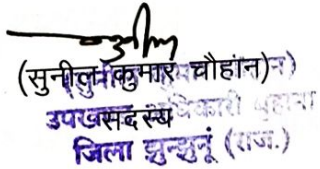 (सुनील कुमार चौहान)
उपखसदस्य अधिकारी बुहाना
जिला झुन्झुनूं (राज.)